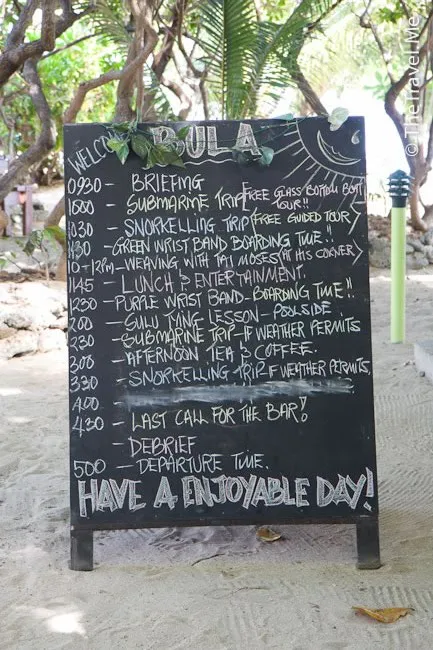 WELCOME BULA
0930 - BRIEFING
1000 - SUBMARINE TRIP FREE GLASS BOTTOM BOAT TOUR!!
1030 - SNORKELLING TRIP FREE GUIDED TOUR
1130 - GREEN WRIST BAND BOARDING TIME!!
10-12pm - WEAVING WITH TAI MOSES (AT HIS CORNER)
1145 - LUNCH & ENTERTAINMENT.
1230 - PURPLE WRIST BAND - BOARDING TIME!!
200 - SULU TYING LESSON - POOLSIDE.
230 - SUBMARINE TRIP - IF WEATHER PERMITS
300 - AFTERNOON TEA & COFFEE.
330 - SNORKELLING TRIP - IF WEATHER PERMITS.
400 - LAST CALL FOR THE BAR!
430 - DEBRIEF
500 - DEPARTURE TIME.
HAVE A ENJOYABLE DAY!
© TheTravel.Me